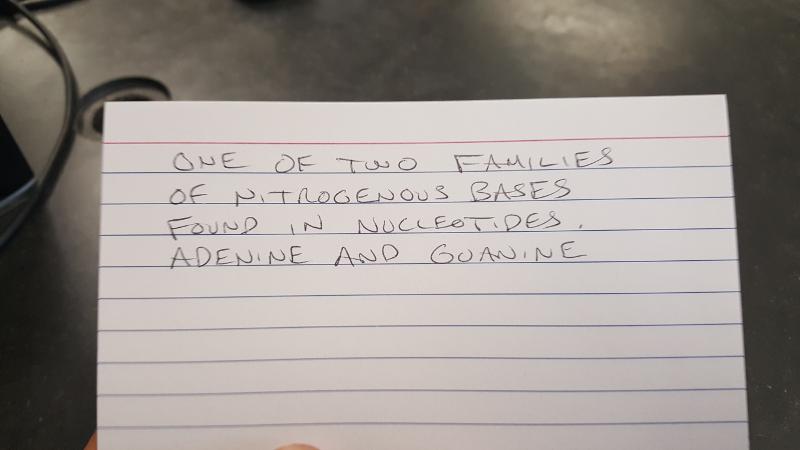 ONE OF TWO FAMILIES
OF NITROGENOUS BASES
FOUND IN NUCLEOTIDES.
ADENINE AND GUANINE